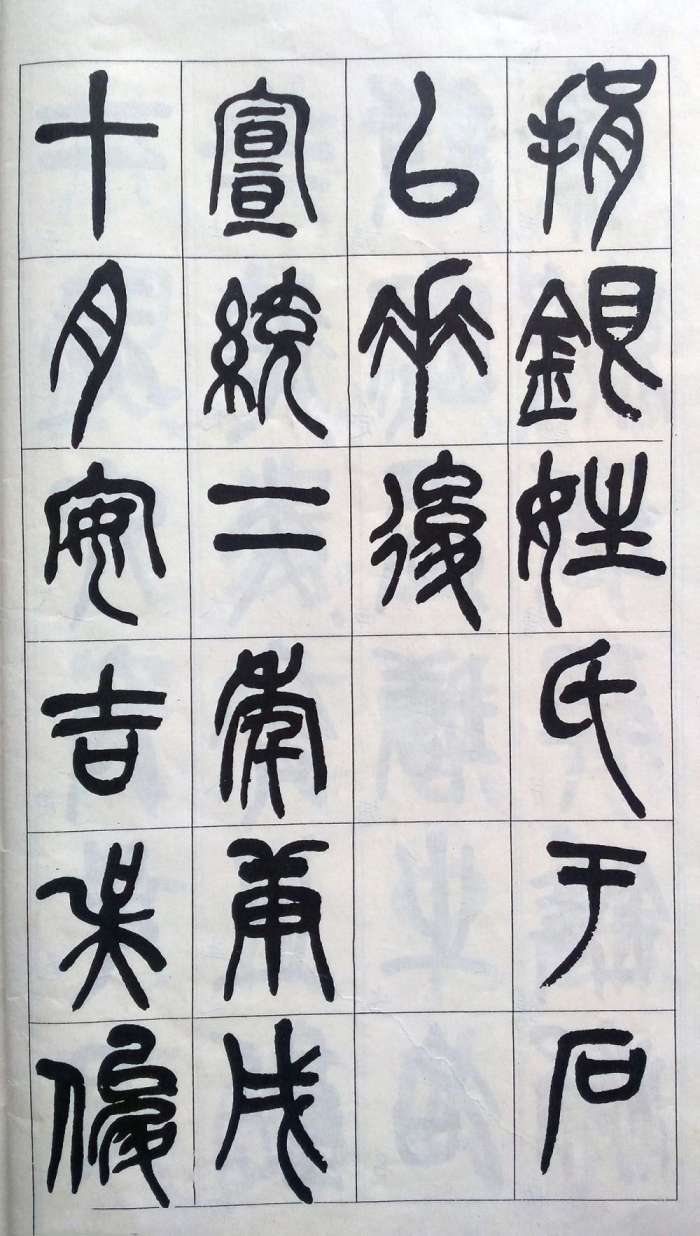 捐銀姓氏于石
以垂後
宣統二年庚戌
十月安吉吳俊